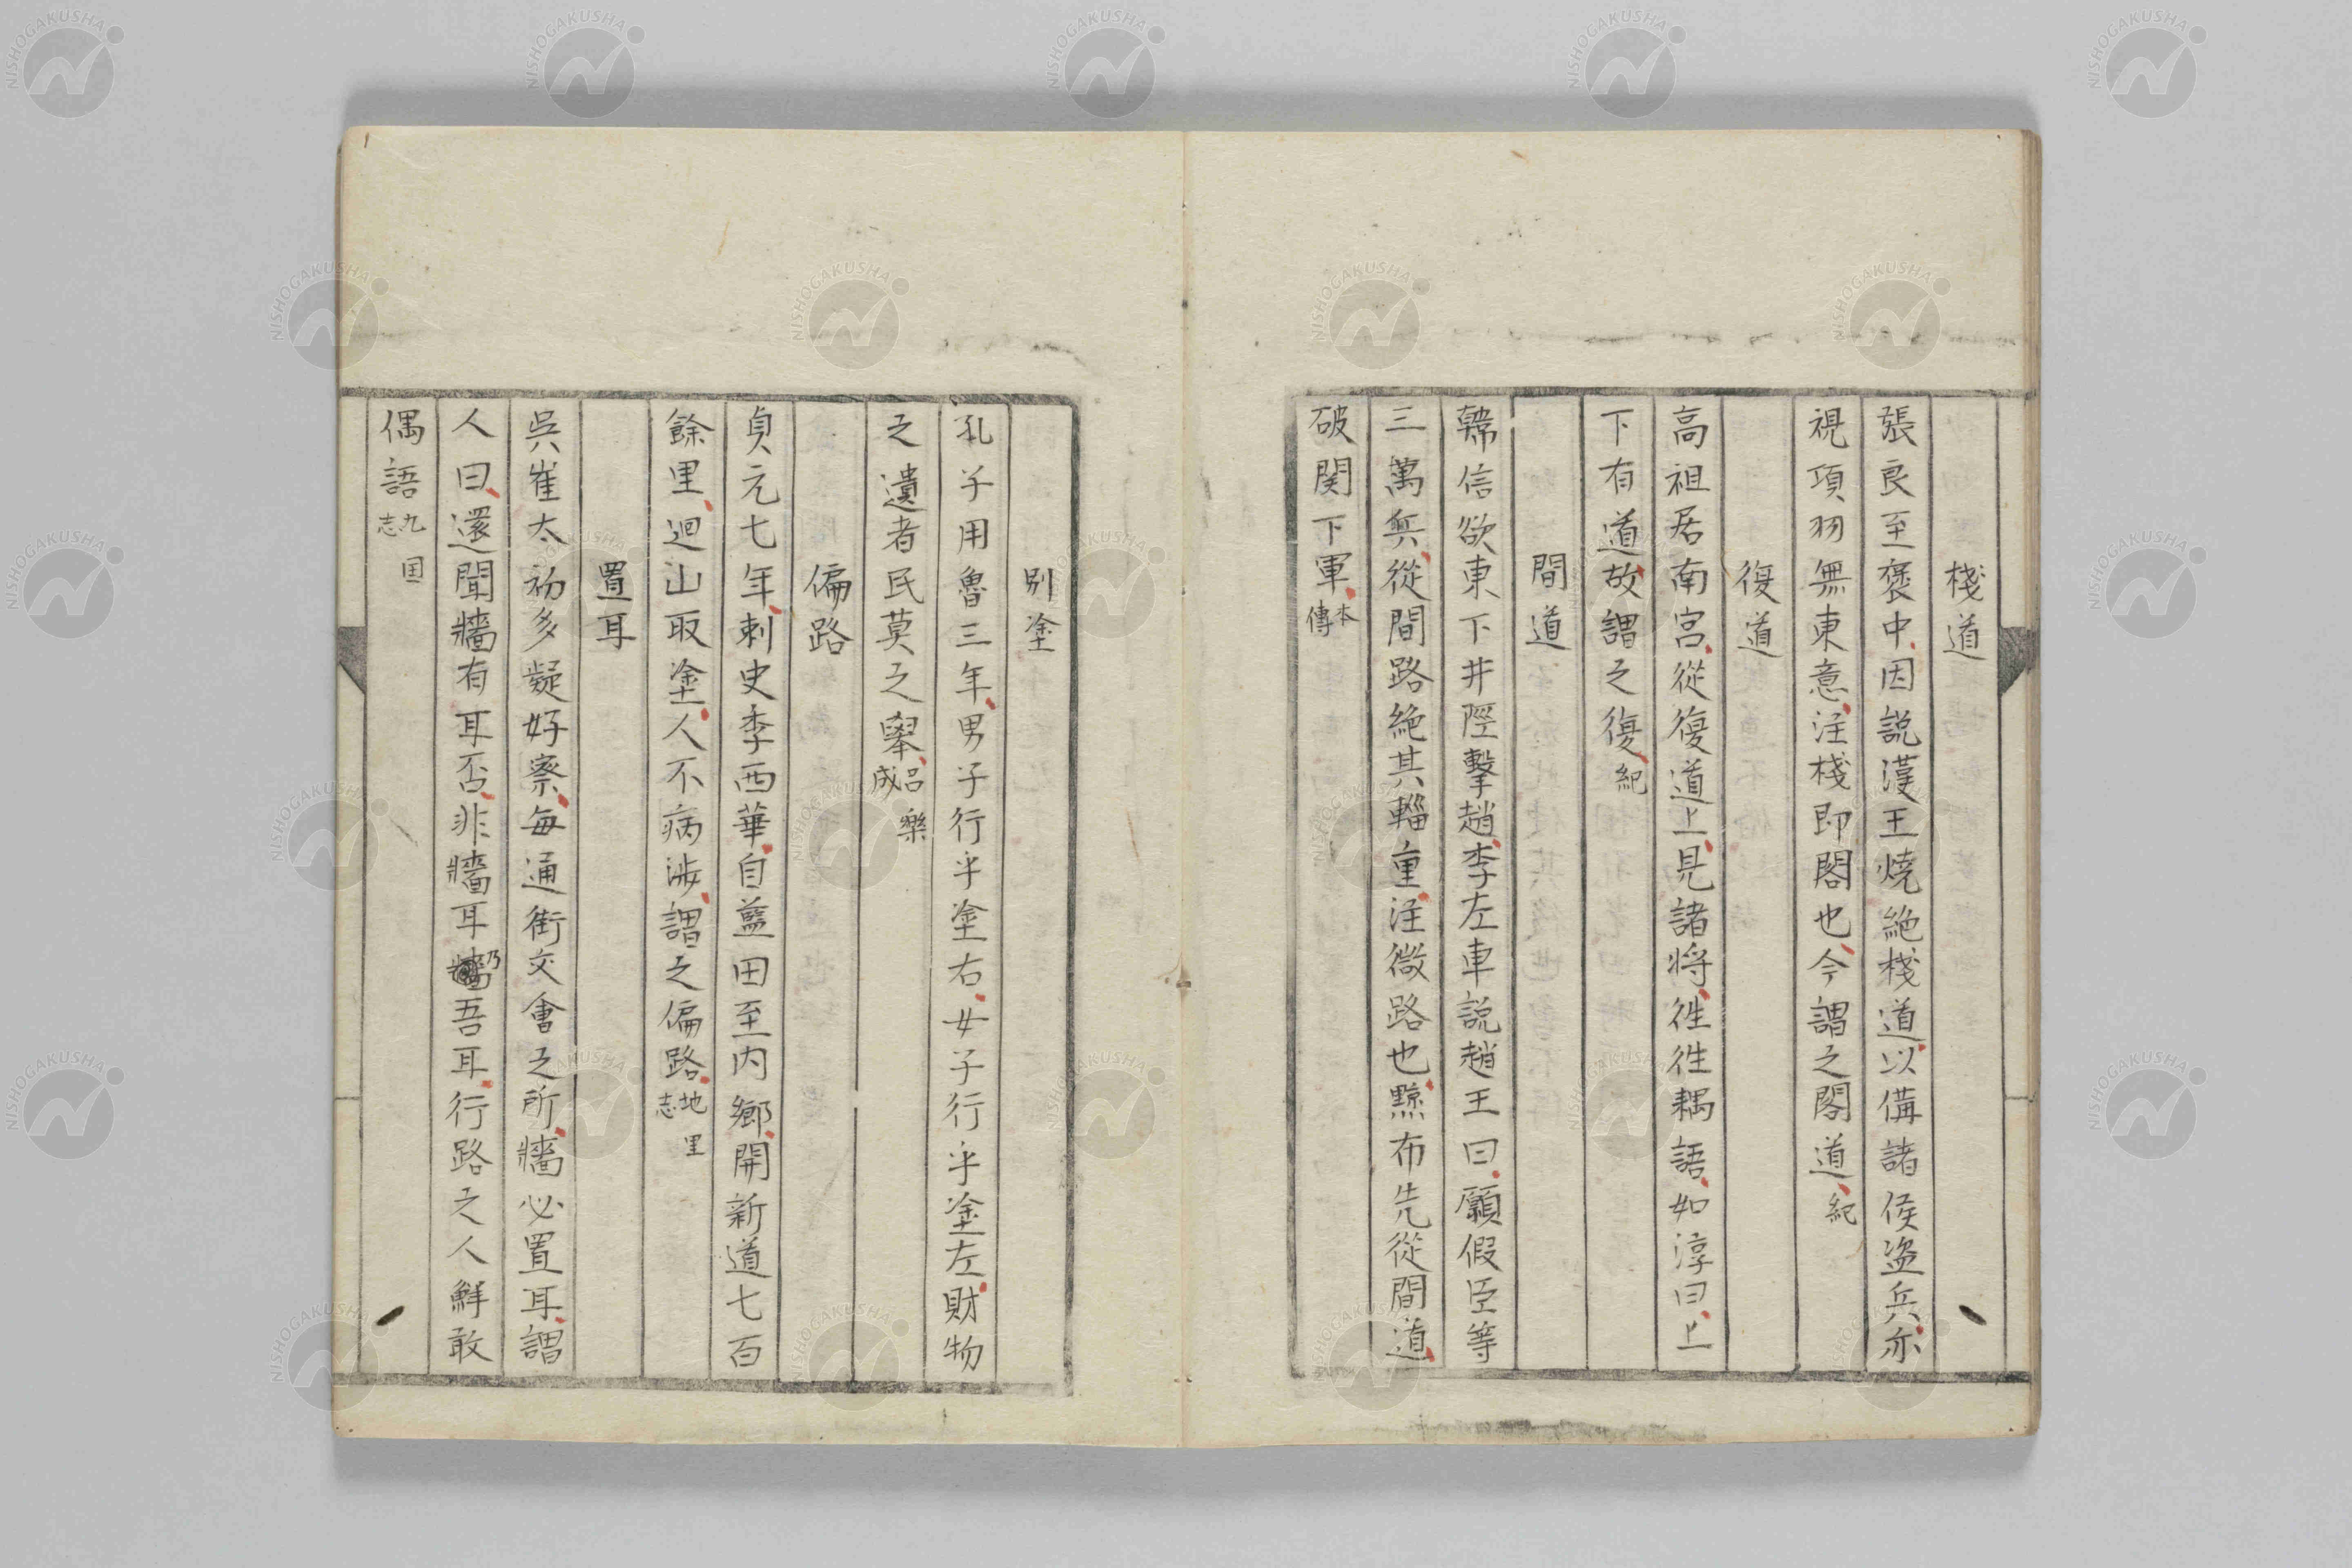 棧道
張良至褒中因説漢王燒絶棧道以備諸侯盗兵亦
視項羽無東意注棧即閣也今謂之閣道紀
復道
高祖居南宮從復道上見諸将徃徃耦語如淳曰上
下有道故謂之復紀
間道
韓信欲東下井陘擊趙李左車説趙王曰願假臣等
三萬兵從間路絶其輜重注微路也黥布先從間道
破関下軍本傳
別塗
孔子用魯三年男子行乎塗右女子行乎塗左財物
之遺者民莫之舉呂樂成
偏路
貞元七年刺史李西華自藍田至内鄉開新道七百
餘里迴山取塗人不病涉謂之偏路地里志
置耳
吳崔太初多疑好察每通街交會之所牆必置耳謂
人曰還聞牆有耳否非牆耳乃吾耳行路之人鮮敢
偶語九国志
NISHOGAKUSHA